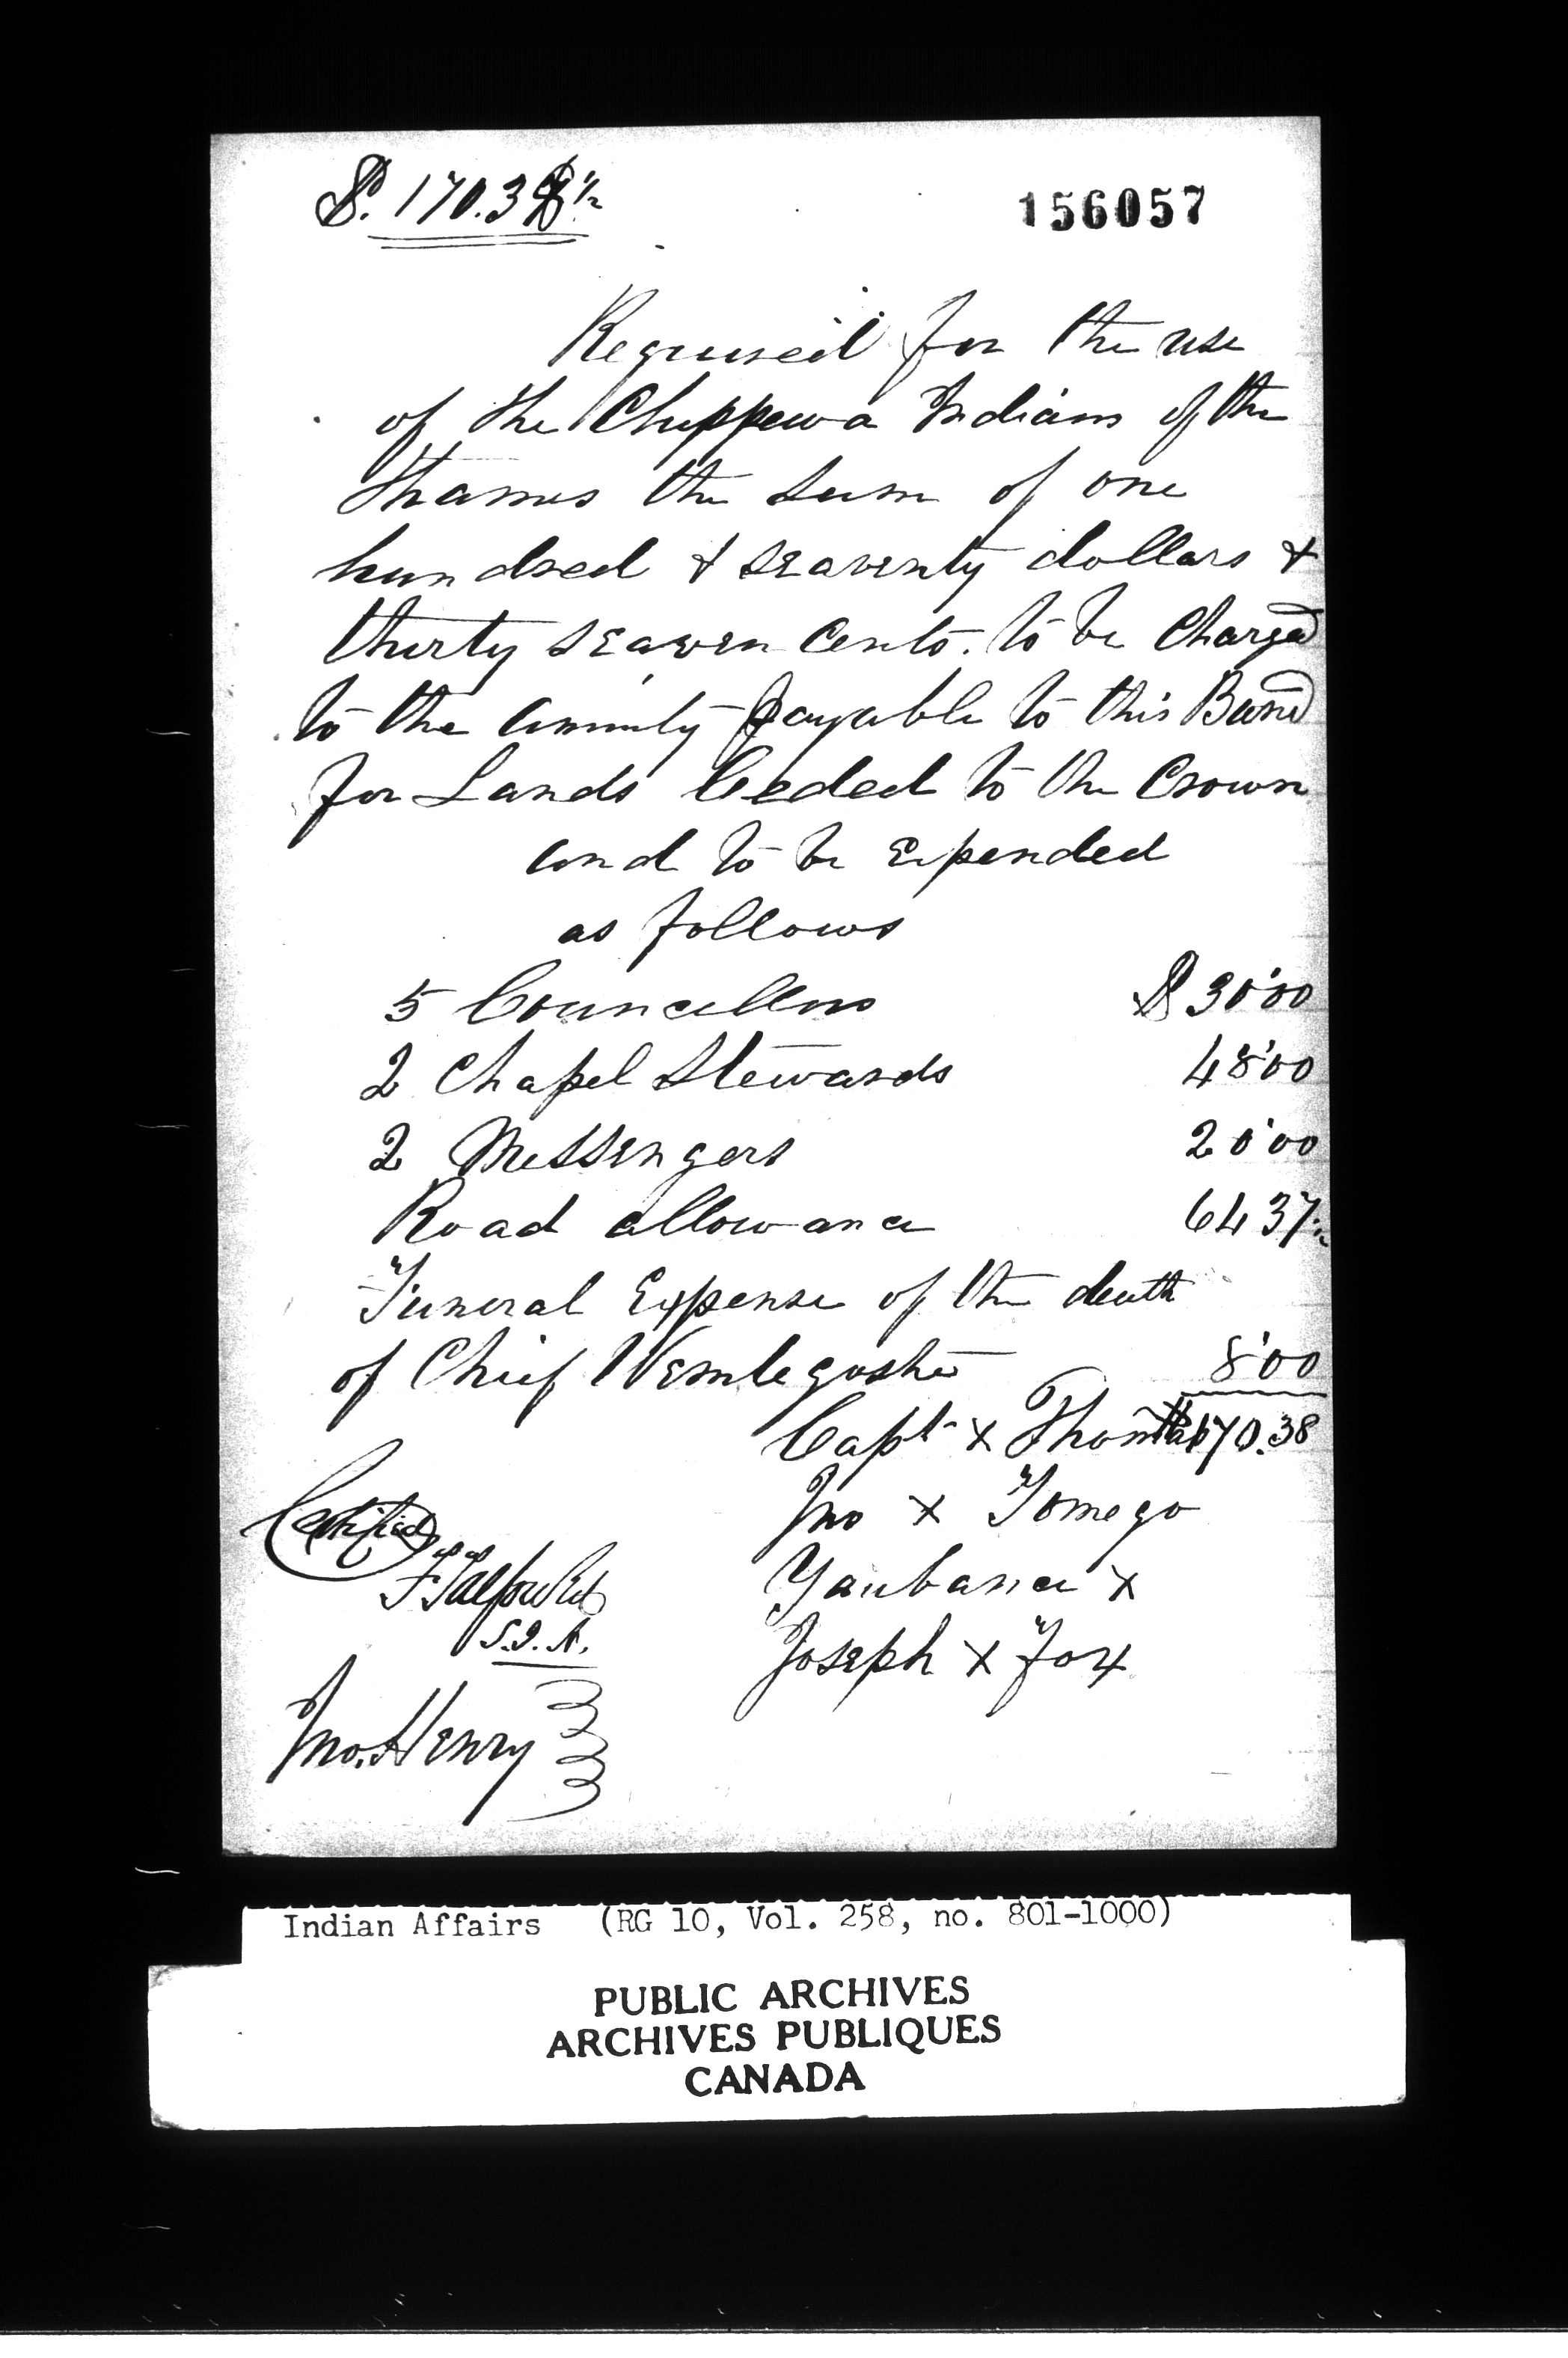 $. 170.38 ½
156057
Required for the use
of the Chippewa Indians of the
Thames the Sum of one
hundred & seaventy dollars &
thirty seaven Cents. to be Charged
to the annuity payable to this Band
for Lands Ceded to the Crown
and to be Expended
as follows
5 Councellors $ 30'00
2 Chapel Stewards 48'00
2 Messengers 20'00
Road allowance 64 37½
Funeral Expense of the death
of Chief 8'00
Capt x Thomas $170.38
Jno x Tomego
Yaubance x
Joseph x Fox
Certified
F Talfourd
S.I.A.
Jno. Henry
Indian Affairs (RG 10, Vol. 258, no. 801-1000)
PUBLIC ARCHIVES
ARCHIVES PUBLIQUES
CANADA